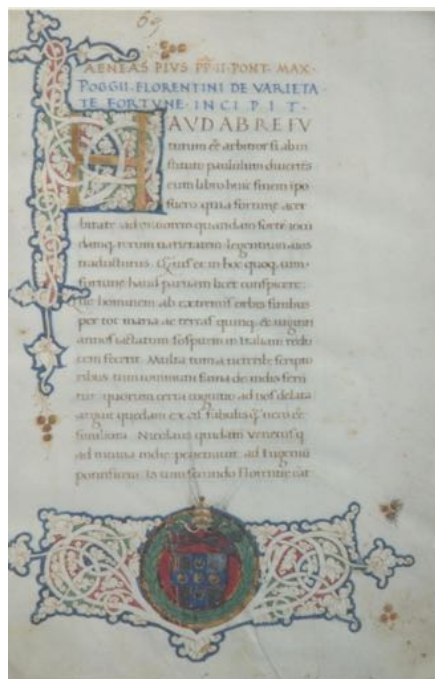 69
AENEAS PIVS PP II PONT MAX
POGGII FLORENTINI DE VARIETA
TE FORTVNE INCIPIT
HAVD AB RE FV
turum eē arbitror si ab in
stituto paululum divertēs
eum libro huic finem ipo
suero qui a fortune acer
bitate ad maiorem quandam
rerum varietatem legentium aīos
traducturus
fortune haud pariam licet conspicere
hominem ab extremis orbis finibus
per tot maria ac terras quinq & uiginti
annos iactatum sospitem in Italiam redu
cem fecerit Multa tum a ueterib scripto
ribus tum communi fama de indis feru
tur quorum certa cognitio ad nos delata
arguit quedam ex eis fabulis
similiora Nicolaus quidam Venetus q
ad intima indie penetrauit ad Eugeniū
pontificem Is tum secundo Florentie erat